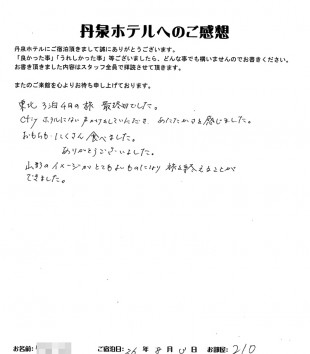 丹泉ホテルへのご感想
丹泉ホテルにご宿泊頂きまして誠にありがとうございます。
「良かった事」「うれしかった事」等ございましたら、どんな事でも構いませんのでお書きください。
お書き頂きました内容はスタッフ全員で拝読させて頂きます。
またのご来館を心よりお待ち申し上げております。
東北3泊4日の旅 最終日でした。
cityホテルにない声かけをしていただき、あたたかさを感じました。
おもちも たくさん食べました。
ありがとうございました。
のイメージがとてもよいものになり 旅を終えることが
できました。
お名前: ご宿泊日: 26 年 8 月 日 お部屋: 210